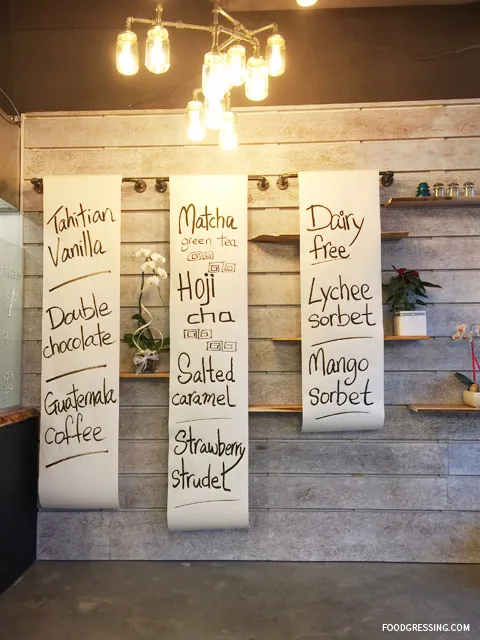 Tahitian
Vanilla
Double
chocolate
Guatemala
coffee
Matcha
green tea
Hoji
cha
Salted
caramel
Strawberry
strudel
Dairy
free
Lychee
sorbet
Mango
sorbet
FOODGRESSING.COM